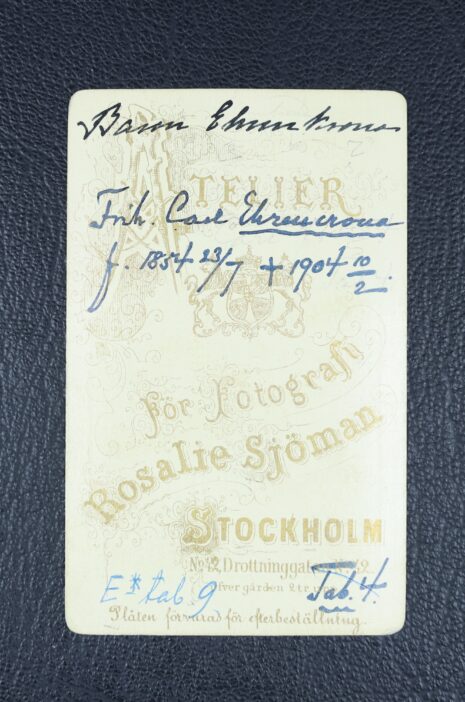 Baron Ehrenkrona
ATELIER
Frih. Carl Ehrencrona
f. 1854 23/7 + 1904 10/2.
För Fotografi
Rosalie Sjöman
STOCKHOLM
No 42 Drottninggatan No 42
öfver gården 2 tr. upp
E** tab 9
Tab. 4.
Plåten förvaras för efterbeställning.